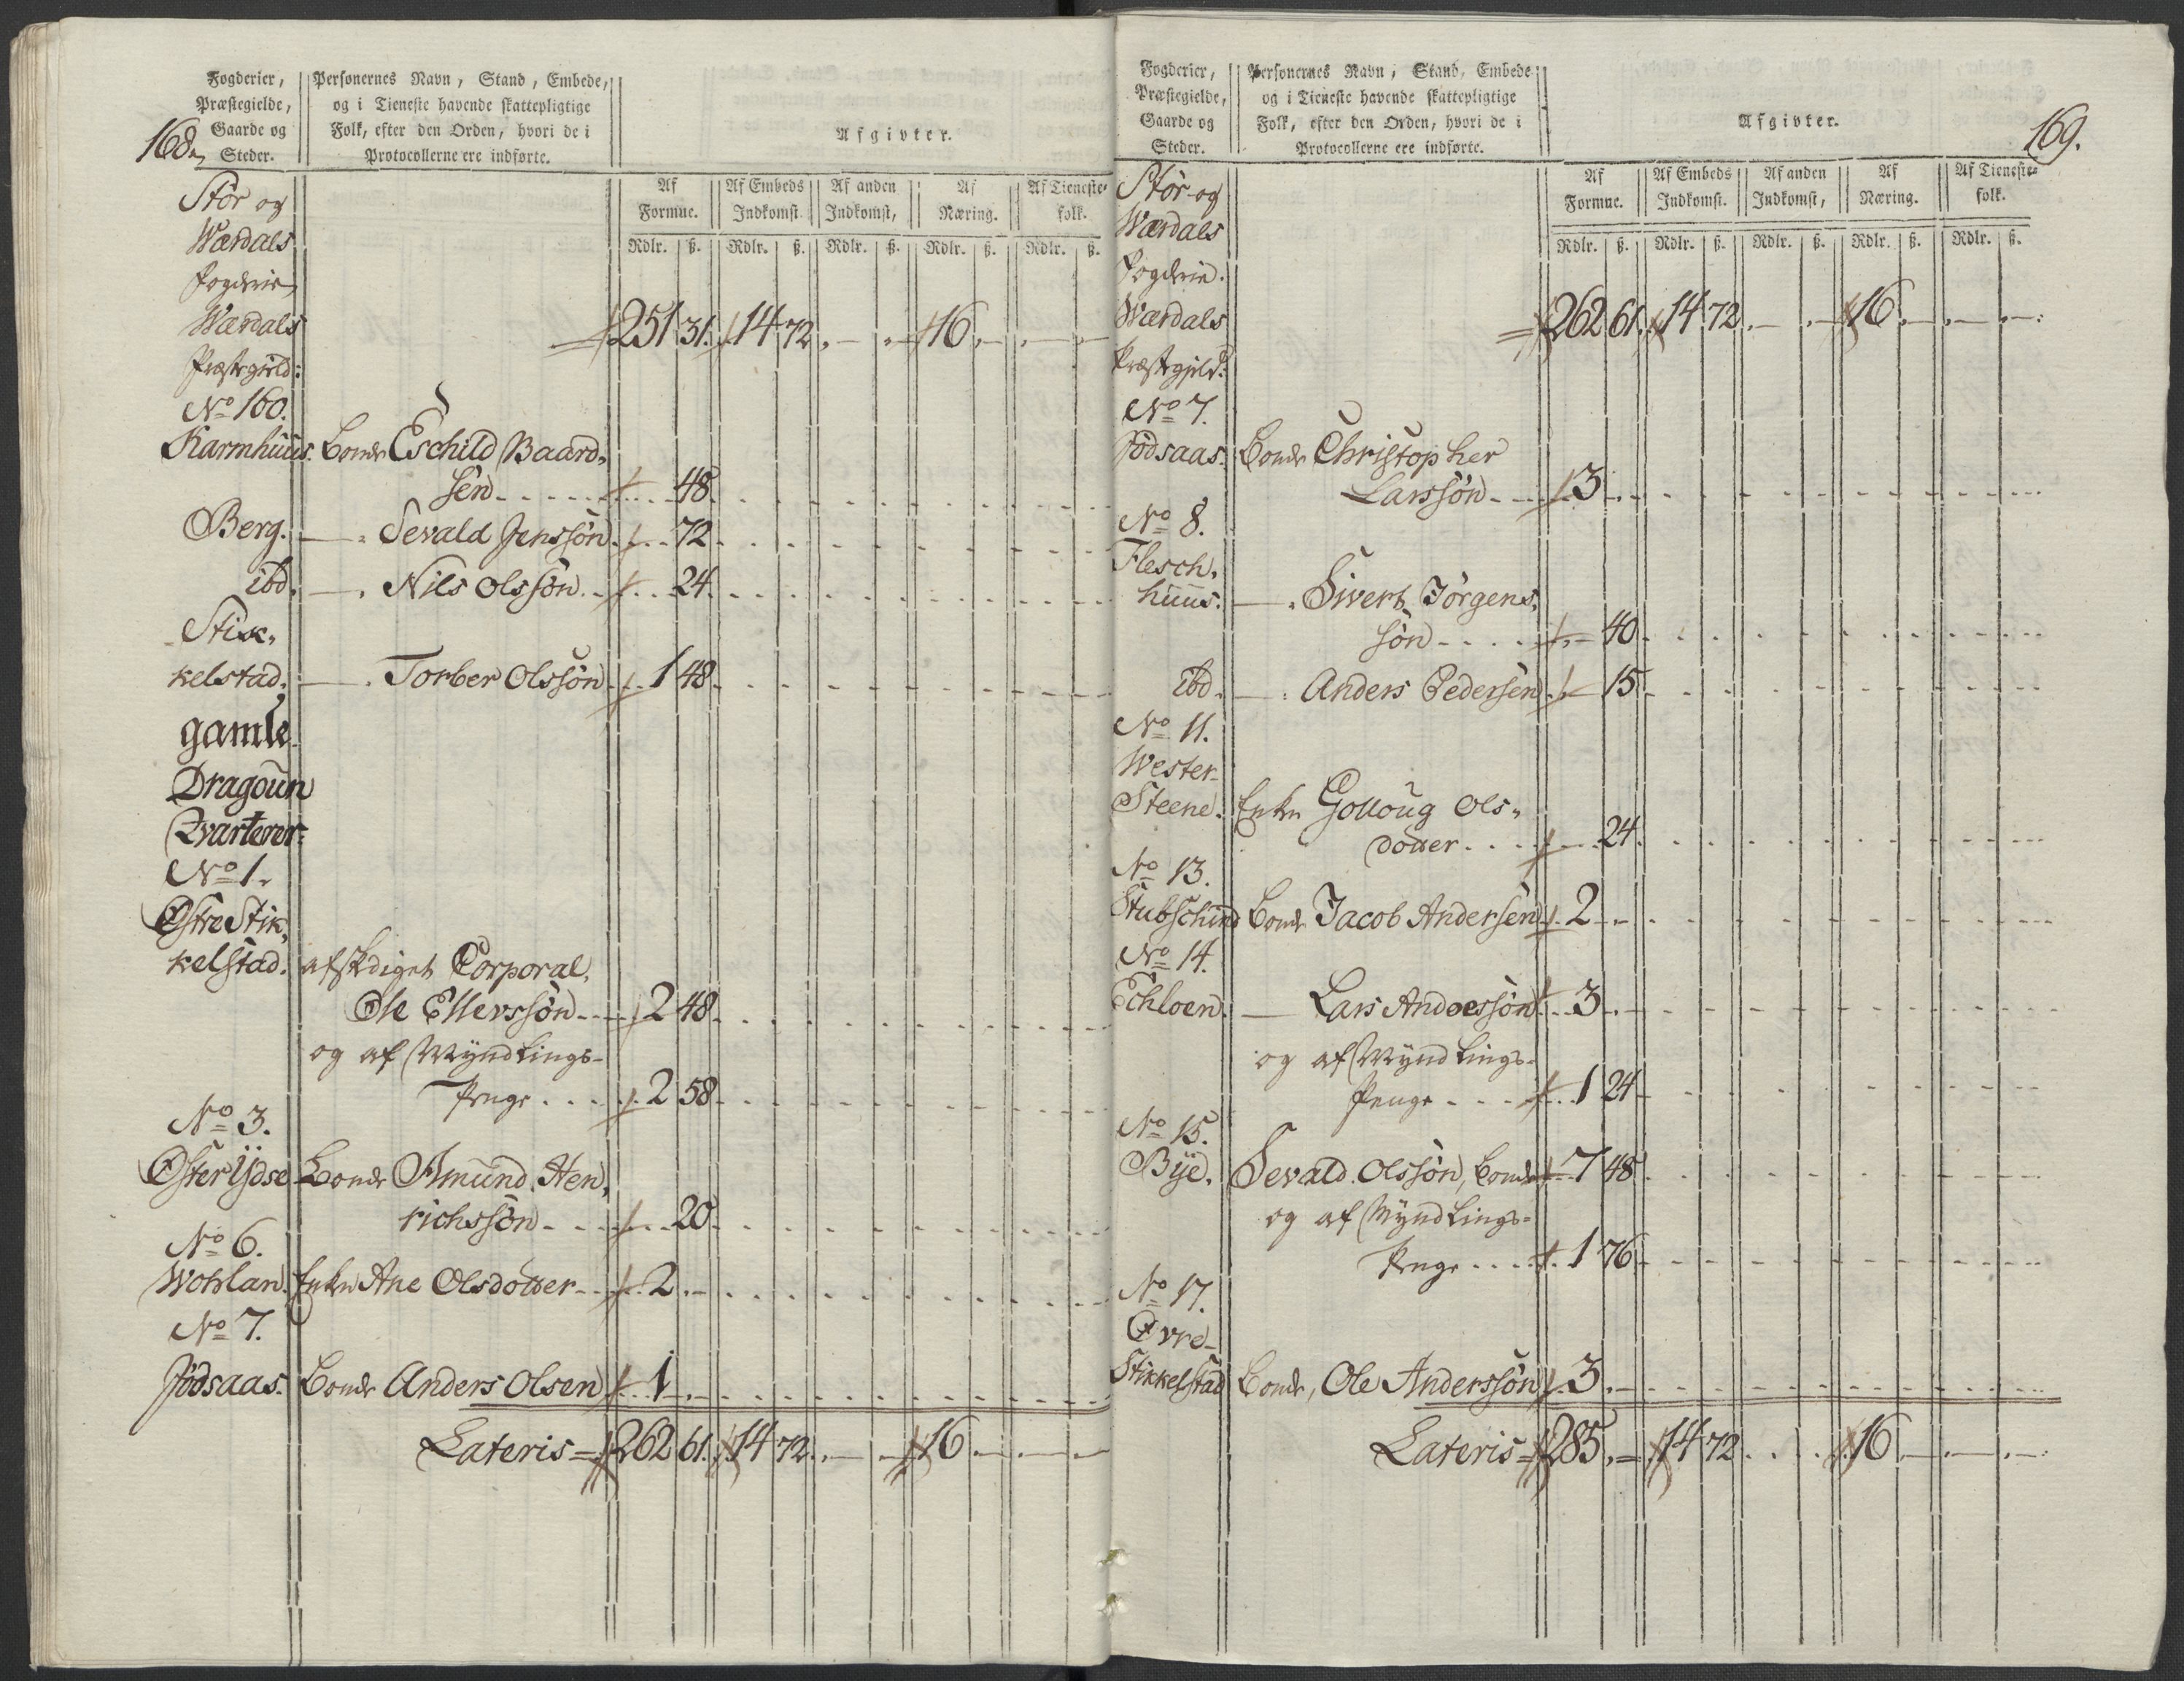 Fogderier,
Præstegielde,
Gaarde og
Steder.
168.
Personernes Navn, Stand, Embede,
og i Tieneste havende skattepligtige
Folk, efter den Orden, hvori de i
Protocollerne ere indførte.
Afgivter.
Af Formue. Af Embeds Indkomst. Af anden Indkomst, Af Næring. Af Tieneste- folk.
Rdlr. ß. Rdlr. ß. Rdlr. ß. Rdlr. ß. Rdlr. ß.
Stør og
Wærdals
Fogderie
Wærdals 251 31. 14 72. - - 16. - - -
Præstegield:
No 160.
Karmhuus. Bonde Eschild Baard-
sen - - - - 48.
Berg. — Sevald Jenssøn - 72
ibd. — Nils Olssøn - 24.
Stik-
kelstad. — Torber Olssøn 1 48.
gamle
Dragoun
Qvarterer:
No 1.
Østre Stik-
kelstad. afskdiget Corporal,
Ole Ellevssøn - - 2 48.
og af Myndlings-
Penge . . . 2 58.
No 3.
Øster Ydse Bonde Amund Hen-
richssøn - - - 20.
No 6.
Woklan. Enke Ane Olsdotter - - 2. -
No 7.
Jødsaas. Bonde Anders Olsen 1. -
Lateris = 262 61. 14 72. - - 16. - - -
Fogderier,
Præstegielde,
Gaarde og
Steder.
Personernes Navn, Stand, Embede
og i Tieneste havende skattepligtige
Folk, efter den Orden, hvori de i
Protocollerne ere indførte.
Afgivter.
169.
Af Formue. Af Embeds Indkomst. Af anden Indkomst, Af Næring. Af Tieneste- folk.
Rdlr. ß. Rdlr. ß. Rdlr. ß. Rdlr. ß. Rdlr. ß.
Stør og
Wærdals
Fogderie.
Wærdals = 262 61. 14 72. - - 16. - - -
Præstegield:
No 7.
Jødsaas. Bonde Christopher
Larssøn - - 3. -
No 8.
Flesch-
huus. — Sivert Jørgens-
søn - - - - 40.
ibd. — Anders Pedersen - 15.
No 11.
Wester-
Steene. Enke Golloug Ols-
dotter . . . - 24.
No 13.
Stubschind Bonde Jacob Andersen 2 -
No 14.
Echloen. — Lars Anderssøn 3. -
og af Myndlings-
Penge - - - 1 24.
No 15.
Bye. Sevald Olssøn, Bonde 7 48.
og af Myndlings-
Penge . . . . 1 76.
No 17.
Øvre
Stikkelstad Bonde, Ole Anderssøn 3. -
Lateris = 285. = 14 72. . . 16 - - -